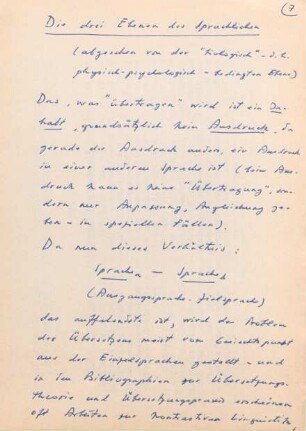 7
Die drei Ebenen des Sprachlichen
(abgesehen von der "biologisch" - d.h.
physisch-psychologisch-bedingten Ebene)
Das, was "übertragen" wird ist ein In-
halt, grundsätzlich kein Ausdruck, da
gerade der Ausdruck anders, ein Ausdruck
in einer anderen Sprache ist (beim Aus-
druck kann es keine "Übertragung", son-
dern nur Anpassung, Angleichung ge-
ben - in speziellen Fällen).
Da nun dieses Verhältnis:
Sprache - Sprache
(Ausgangssprache - Zielsprache)
das auffallendste ist, wird das Problem
des Übersetzens meist vom Gesichtspunkt
aus der Einzelsprachen gestellt - und
in den Bibliographien zur Übersetzungs-
theorie und Übersetzungspraxis erscheinen
oft Arbeiten zur kontrastiven Linguistik